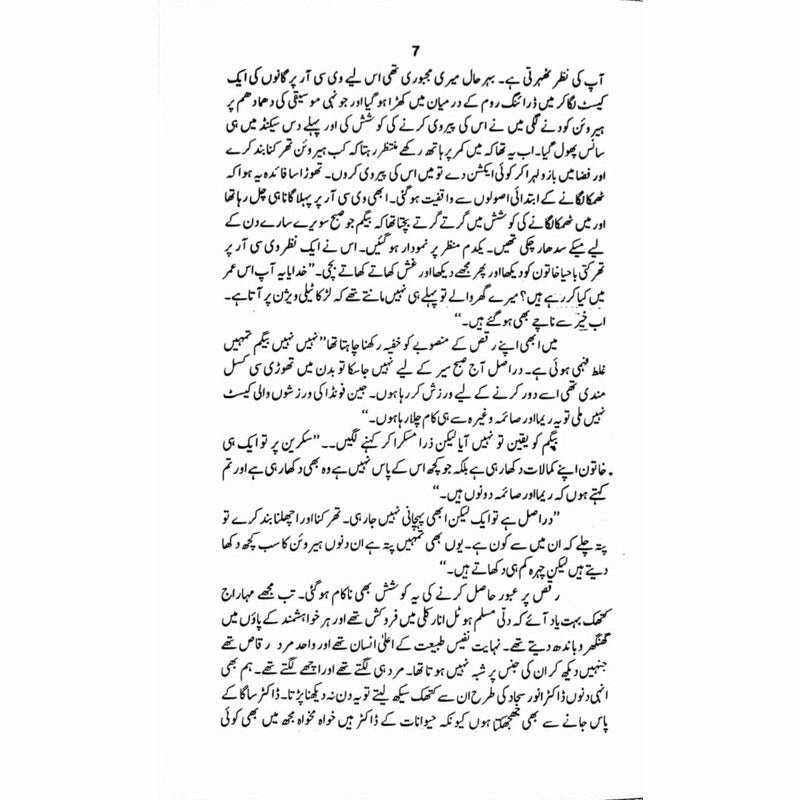 7
آپ کی نظر ٹھہرتی ہے۔ بہر حال میری مجبوری تھی اس لیے وی سی آر پر گانوں کی ایک
کیسٹ لگا کر میں ڈرائنگ روم کے درمیان میں کھڑا ہو گیا اور جونہی موسیقی کی دھما دھم پر
ہیروئن کودنے لگی میں نے اس کی پیروی کرنے کی کوشش کی اور پہلے دس سیکنڈ میں ہی
سانس پھول گیا۔ اب یہ تھا کہ میں کمر پر ہاتھ رکھے منتظر رہتا کہ کب ہیروئن تھرکنا بند کرے
اور فضا میں بازو لہرا کر کوئی ایکشن دے تو میں اس کی پیروی کروں۔ تھوڑا سا فائدہ یہ ہوا کہ
ٹھمکا لگانے کے ابتدائی اصولوں سے واقفیت ہو گئی۔ ابھی وی سی آر پر پہلا گانا ہی چل رہا تھا
اور میں ٹھمکا لگانے کی کوشش میں گرتے گرتے بچتا تھا کہ بیگم جو صبح سویرے سارے دن کے
لیے میکے سدھار چکی تھیں۔ یکدم منظر پر نمودار ہو گئیں۔ اس نے ایک نظر وی سی آر پر
تھرکتی با حیا خاتون کو دیکھا اور پھر مجھے دیکھا اور غش کھاتے کھاتے بچی۔ ”خدایا یہ آپ اس عمر
میں کیا کر رہے ہیں؟ میرے گھر والے تو پہلے ہی نہیں مانتے تھے کہ لڑکا ٹیلی ویژن پر آتا ہے۔
اب خیر سے ناچے بھی ہو گئے ہیں۔“
میں ابھی اپنے رقص کے منصوبے کو خفیہ رکھنا چاہتا تھا ”نہیں نہیں بیگم تمہیں
غلط فہمی ہوئی ہے۔ دراصل آج صبح سیر کے لیے نہیں جا سکا تو بدن میں تھوڑی سی کسل
مندی تھی اسے دور کرنے کے لیے ورزش کر رہا ہوں۔ جین فونڈا کی ورزشوں والی کیسٹ
نہیں ملی تو یہ ریما اور صائمہ وغیرہ سے ہی کام چلا رہا ہوں۔“
بیگم کو یقین تو نہیں آیا لیکن ذرا مسکرا کر کہنے لگیں۔۔ ”سکرین پر تو ایک ہی
خاتون اپنے کمالات دکھا رہی ہے بلکہ جو کچھ اس کے پاس نہیں ہے وہ بھی دکھا رہی ہے اور تم
کہتے ہوں کہ ریما اور صائمہ دونوں ہیں۔“
”دراصل ہے تو ایک لیکن ابھی پہچانی نہیں جا رہی۔ تھرکنا اور اچھلنا بند کرے تو
پتہ چلے کہ ان میں سے کون ہے۔ یوں بھی تمہیں پتہ ہے ان دنوں ہیروئن کا سب کچھ دکھا
دیتے ہیں لیکن چہرہ کم ہی دکھاتے ہیں۔“
رقص پر عبور حاصل کرنے کی یہ کوشش بھی ناکام ہو گئی۔ تب مجھے مہاراج
کتھک بہت یاد آئے کہ دلّی مسلم ہوٹل انارکلی میں فروکش تھے اور ہر خواہشمند کے پاؤں میں
گھنگھرو باندھ دیتے تھے۔ نہایت نفیس طبیعت کے اعلیٰ انسان تھے اور واحد مرد رقاص تھے
جنہیں دیکھ کر ان کی جنس پر شبہ نہیں ہوتا تھا۔ مرد ہی لگتے تھے اور اچھے لگتے تھے۔ ہم بھی
انہی دنوں ڈاکٹر انور سجاد کی طرح ان سے کتھک سیکھ لیتے تو یہ دن نہ دیکھنا پڑتا۔ ڈاکٹر ساگا کے
پاس جانے سے بھی جھجھکتا ہوں کیونکہ حیوانات کے ڈاکٹر ہیں خواہ مخواہ مجھ میں بھی کوئی